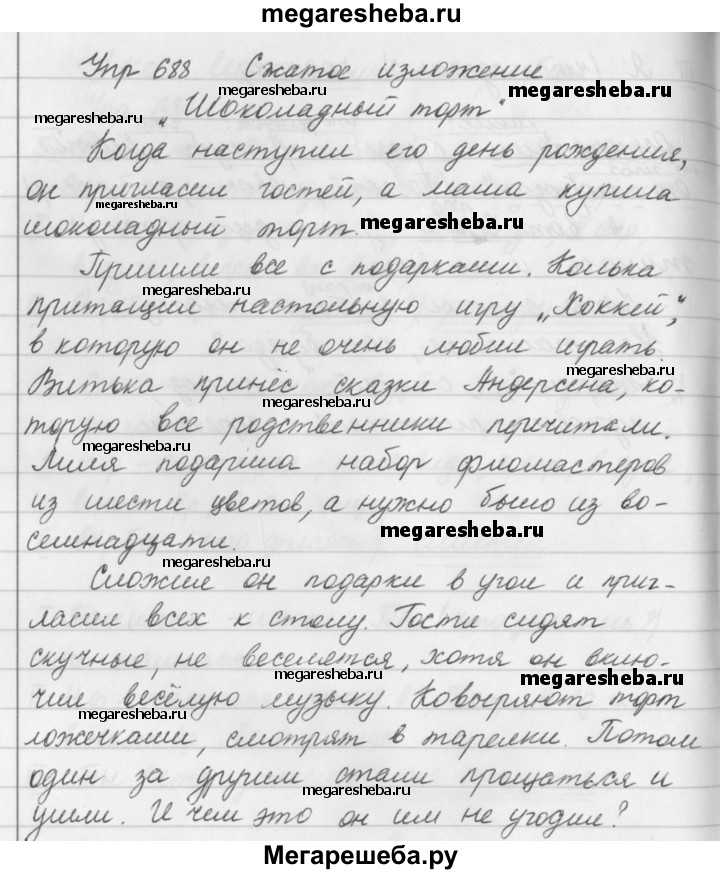 megaresheba.ru
Упр 688 Сжатое изложение
megaresheba.ru
„Шоколадный торт"
megaresheba.ru
megaresheba.ru
Когда наступил его день рождения,
он пригласил гостей, а мама купила
megaresheba.ru
шоколадный торт.
megaresheba.ru
Пришли все с подарками. Колька
megaresheba.ru
притащил настольную игру „Хоккей",
в которую он не очень любил играть.
megaresheba.ru
Витька принёс сказки Андерсена, ко-
megaresheba.ru
торую все родственники перечитали.
megaresheba.ru
Лиля подарила набор фломастеров
из шести цветов, а нужно было из во-
megaresheba.ru
семнадцати.
megaresheba.ru
Сложил он подарки в угол и приг-
megaresheba.ru
ласил всех к столу. Гости сидят
скучные, не веселятся, хотя он вклю-
megaresheba.ru
megaresheba.ru
чил весёлую музыку. Ковыряют торт
megaresheba.ru
ложечками, смотрят в тарелки. Потом
один за другим стали прощаться и
megaresheba.ru
ушли. И чем это он им не угодил?
Мегарешеба.ру